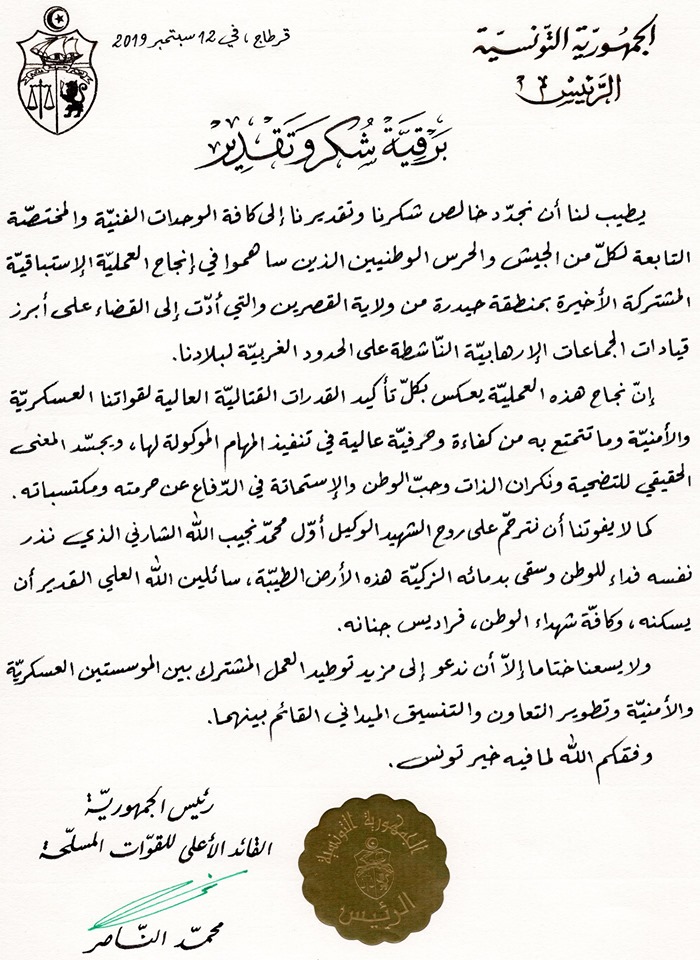 الجمهوريّة التّونسيّة
الرّئيس
قرطاج، في 12 سبتمبر 2019
برقيّة شكر وتقدير
يطيب لنا أن نجدّد خالص شكرنا وتقديرنا إلى كافة الوحدات الفنيّة والمختصّة
التابعة لكلّ من الجيش والحرس الوطنيين الذين ساهموا في إنجاح العمليّة الإستباقيّة
المشتركة الأخيرة بمنطقة حيدرة من ولاية القصرين والتي أدّت إلى القضاء على أبرز
قيادات الجماعات الإرهابيّة النّاشطة على الحدود الغربيّة لبلادنا.
إنّ نجاح هذه العمليّة يعكس بكلّ تأكيد القدرات القتاليّة العالية لقواتنا العسكريّة
والأمنيّة وما تتمتع به من كفاءة وحرفيّة عالية في تنفيذ المهام الموكولة لها، ويجسّد المعنى
الحقيقي للتضحية ونكران الذات وحبّ الوطن والإستماتة في الدّفاع عن حرمته ومكتسباته.
كما لا يفوتنا أن نترحّم على روح الشهيد الوكيل أوّل محمّد نجيب الله الشارني الذي نذر
نفسه فداء للوطن وسقى بدمائه الزكيّة هذه الأرض الطيّبة، سائلين الله العلي القدير أن
يسكنه، وكافّة شهداء الوطن، فراديس جنانه.
ولا يسعنا ختاما إلاّ أن ندعو إلى مزيد توطيد العمل المشترك بين الموسستين العسكريّة
والأمنيّة وتطوير التعاون والتنسيق الميداني القائم بينهما.
وفقكم الله لما فيه خير تونس.
رئيس الجمهوريّة
القائد الأعلى للقوّات المسلّحة
محمّد النّاصر
الجمهورية التونسية
الرئيس